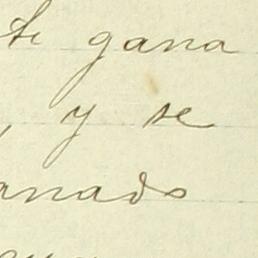 te gana
, y se
anado